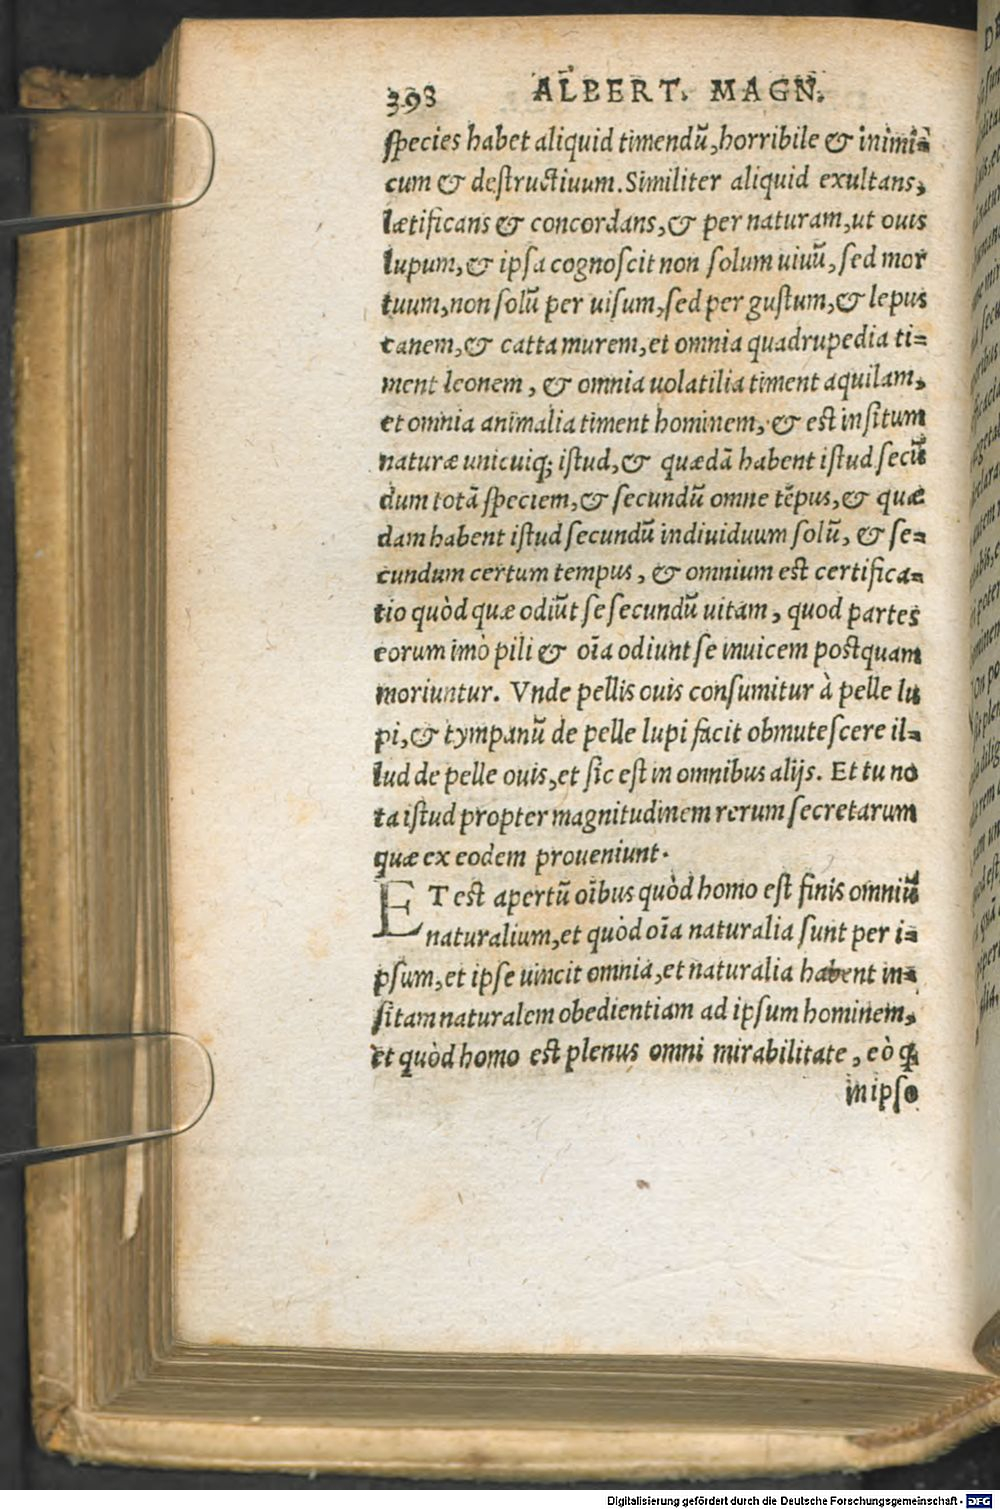 398 ALBERT. MAGN.
ſpecies habet aliquid timendũ, horribile & inimi=
cum & deſtructiuum. Similiter aliquid exultans,
lætificans & concordans, & per naturam, ut ouis
lupum, & ipſa cognoſcit non ſolum uiuũ, ſed mor
tuum, non ſolũ per uiſum, ſed per guſtum, & lepus
canem, & catta murem, et omnia quadrupedia ti=
ment leonem, & omnia uolatilia timent aquilam,
et omnia animalia timent hominem, & eſt inſitum
naturæ unicuiq; iſtud, & quædã habent iſtud ſecũ
dum totã ſpeciem, & ſecundũ omne tẽpus, & quæ
dam habent iſtud ſecundũ indiuiduum ſolũ, & ſe=
cundum certum tempus, & omnium eſt certifica=
tio quòd quæ odiũt ſe ſecundũ uitam, quod partes
eorum imò pili & oĩa odiunt ſe inuicem poſtquam
moriuntur. Vnde pellis ouis conſumitur à pelle lu
pi, & tympanũ de pelle lupi facit obmuteſcere il=
lud de pelle ouis, et ſic eſt in omnibus alijs. Et tu no
ta iſtud propter magnitudinem rerum ſecretarum
quæ ex eodem proueniunt.
ET eſt apertũ oĩbus quòd homo eſt finis omniũ
naturalium, et quòd oĩa naturalia ſunt per i=
pſum, et ipſe uincit omnia, et naturalia habent in=
ſitam naturalem obedientiam ad ipſum hominem,
et quòd homo eſt plenus omni mirabilitate, eò ꝗ
in ipſo
Digitalisierung gefördert durch die Deutsche Forschungsgemeinschaft - DFG